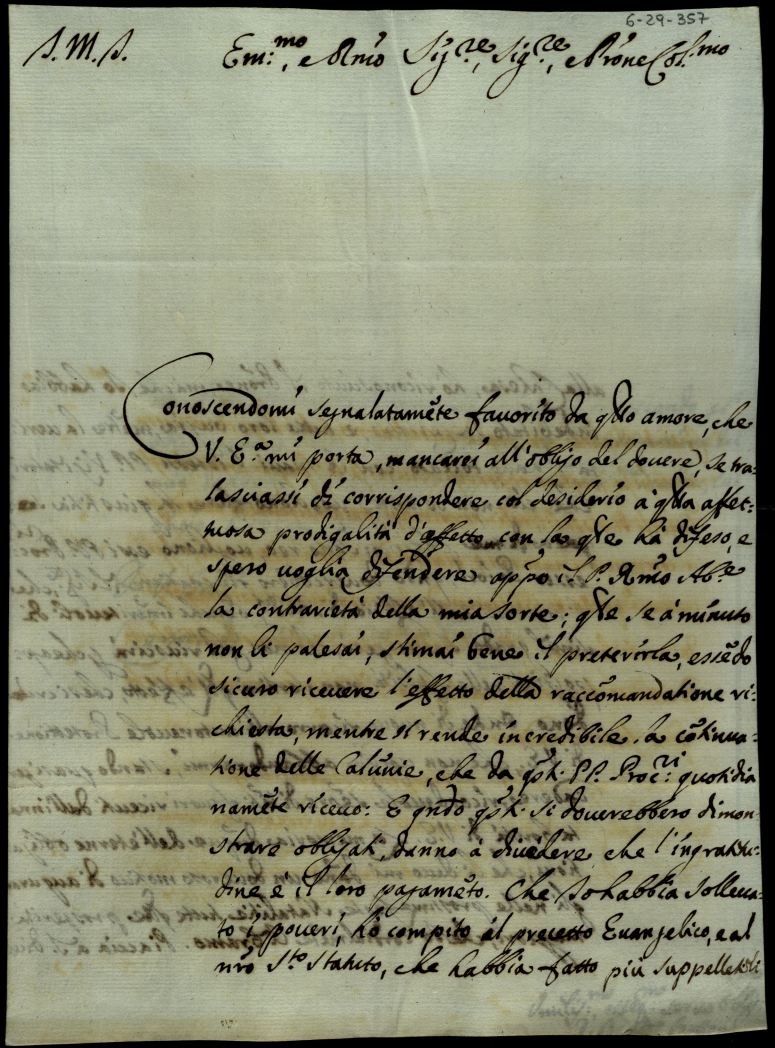 6-29-357
S. M. S.
Em:mo, e Rmo Sig.re, Sig.re, e Prone Col.mo
Conoscendomi segnalatamẽte favorito da qsto amore, che
V. E.a mi porta, mancarei all'obligo del douere, se tra:
lasciassi di corrispondere col desiderio à qlla affet:
tuosa prodigalità d'affetto, con la qle hà difeso, e
spero uoglia difendere appo il P. Rmo Ab.e
la contrarietà della mia sorte; qle se à minuto
non li palesai, stimai bene il preterirla, essẽdo
sicuro riceuere l'effetto della raccõmandatione ri:
chiesta, mentre si rende incredibile la cõtinua:
tione delle Calunie, che da qsti PP. Proc.ri quotidia
namẽte riceuo: E qndo qsti si douerebbero dimon
strare obligati, danno à diuedere che l'ingratitu:
dine è il loro pagamẽto. Che Io habbia solleua:
to i poueri, hò compito al precetto Euangelico, e al
nrõ S.to Statuto, che habbia fatto più suppellettili